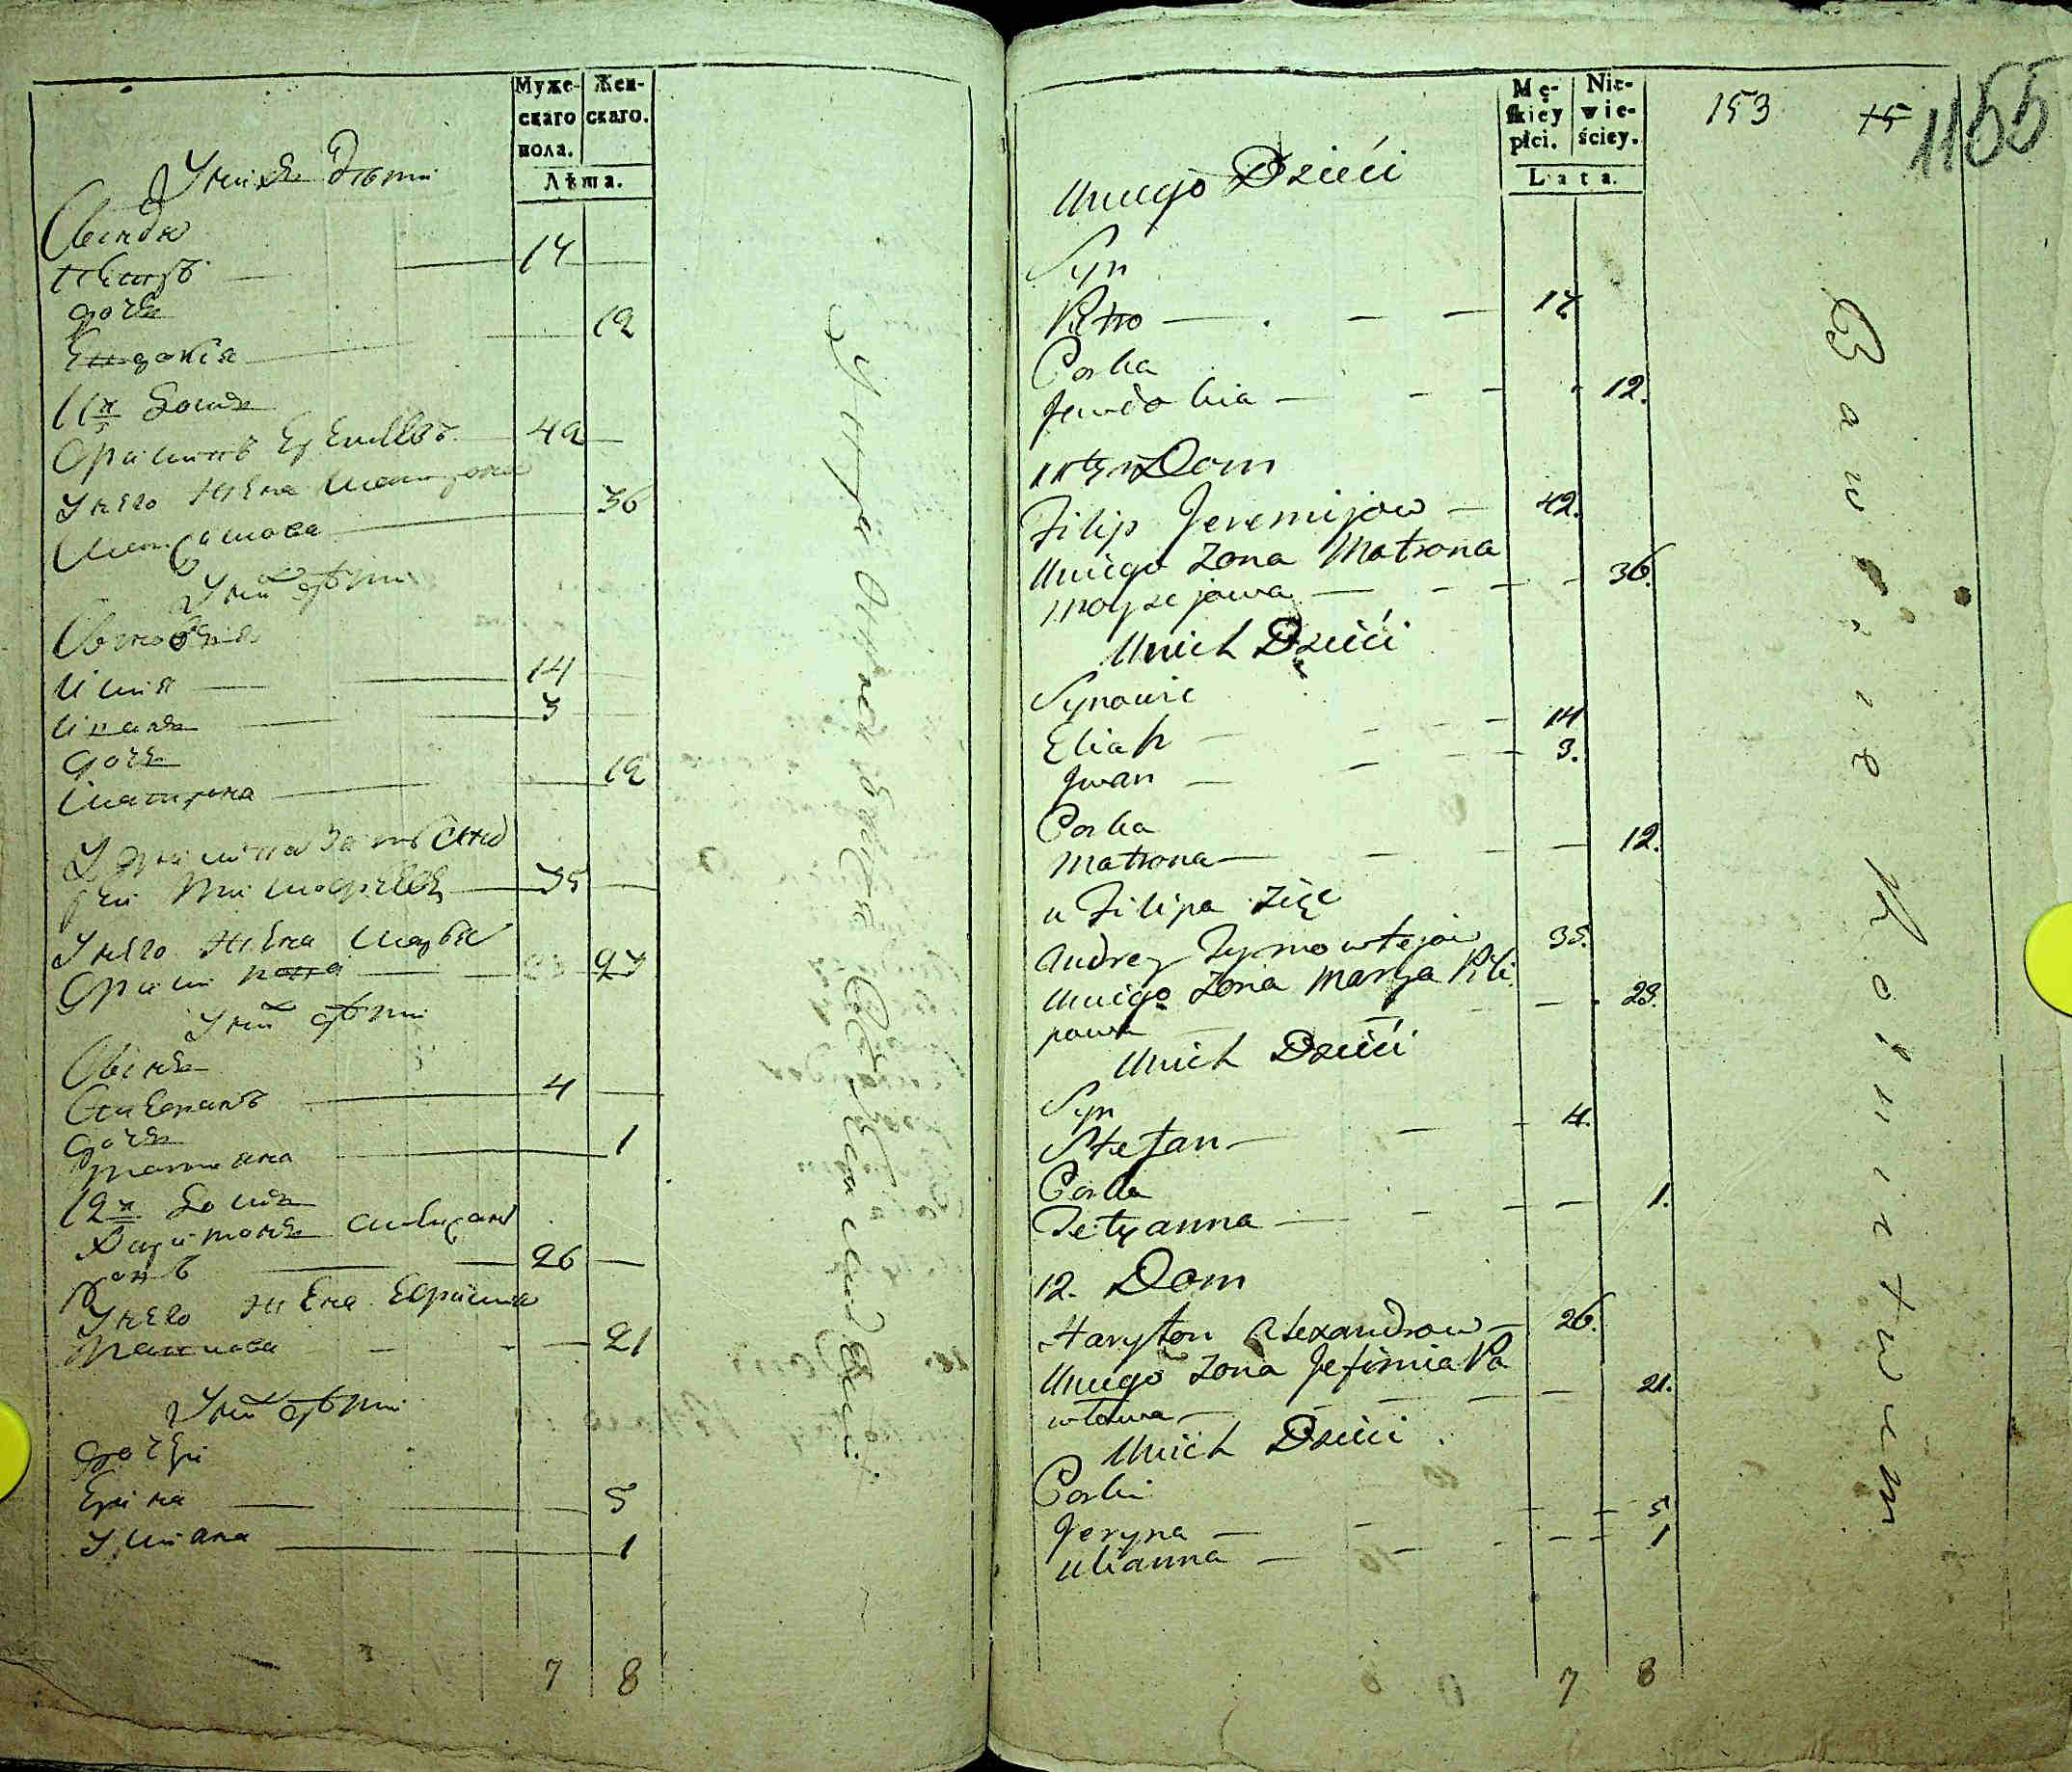 Муже-
скаго
пола.
Жен-
скаго.
Лѣта.
У нихъ дѣти
Сынъ
Петръ 14
дочь
Евдокия 12
11й Домъ
Филипъ Еремѣевъ 42
У него жена Матрона 36
У нихъ дѣти
Сыновья
Илия 14
Иванъ 3
дочь
Матрона 12
У Филипа зять Анд
рей Тимофѣевъ 35
У него жена Марья
Филипова 23
У нихъ дѣти
Сынъ
Стефанъ 4
дочь
Татиана 1
12й Домъ
Харитонъ Александ
ровъ 26
У него жена Ефимия
Павлова 21
У нихъ дѣти
дочери
Ерина 5
Улиана 1
7 8
Mę-
skiey
płci.
Nie-
wie-
ściey.
Lata.
153
15
1155
Unuego Dzieći
Syn
Petro 14
Corka
Jewdokia 12.
11ty Dom
Filip Jeremijow 42.
Uniego Zona Matrona
Moysejowa 36.
Unich Dzieći
Synowie
Eliasz 14
Jwan 3.
Corka
Matrona 12.
u Filipa Zięc
Andrey Tymowtejow 35.
Uniego Zona Marya Fili
powa 23.
Unich Dzieći
Syn
Stefan 4.
Corka
Tetyanna 1.
12. Dom
Haryton Alexandrow 26.
Uniego Zona Jefimia Pa
wlowa 21.
Unich Dzieći
Corki
Jeryna 5
Ulianna 1
7 8